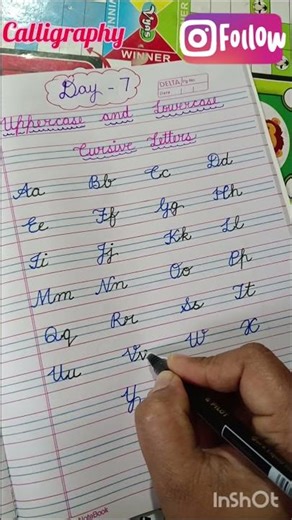 Calligraphy
Follow
WINNER
Day - 7
DELTA
Date
Uppercase and Lowercase
Cursive Letters
Aa Bb Cc Dd
Ee Ff Gg Hh
Ii Jj Kk Ll
Mm Nn Oo Pp
Qq Rr Ss Tt
Uu Vv W X
Y
NoteBook
InShOt